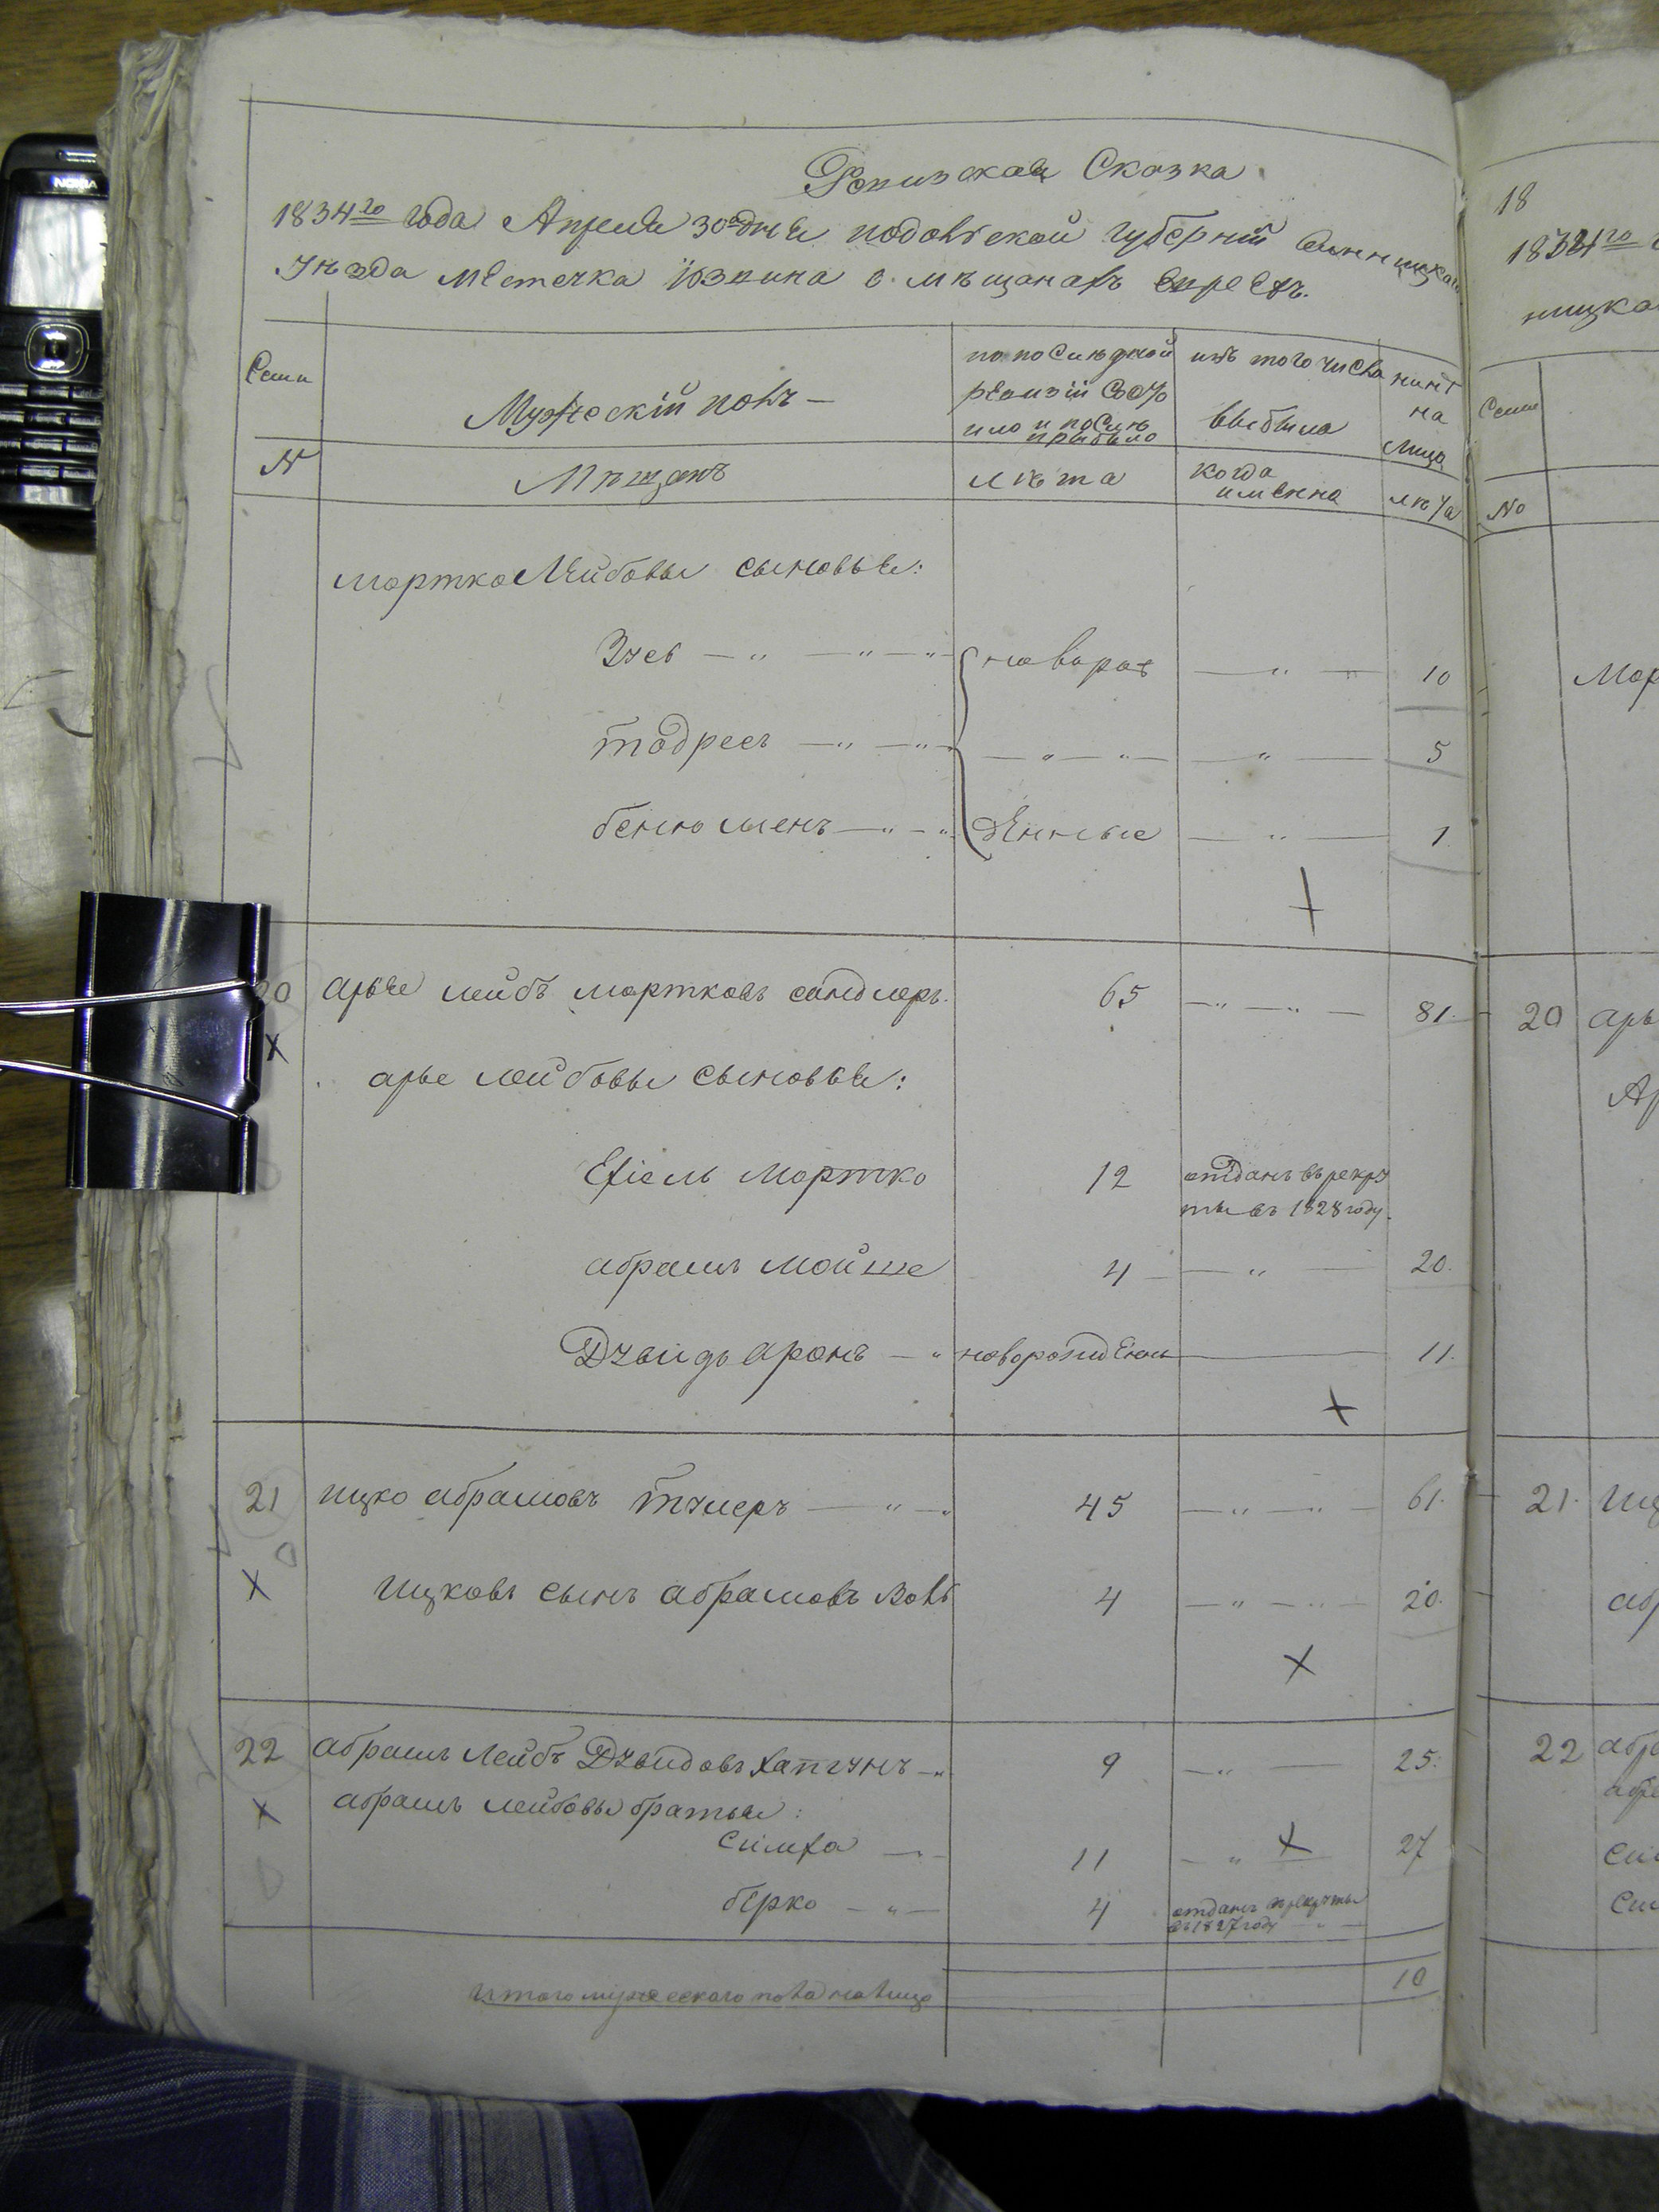 NOKIA
Ревизская Сказка
1834го года Апреля 30 дня подольской губерніи винницкаго
уѣзда местечка Юзвина о мѣщанахъ евреяхъ.
Семьи
Мужескій полъ —
по последней ревизіи состояло и послѣ прибыло
изъ того числа выбыло
нынѣ на лицо
№
Мѣщанъ
лѣта
когда именно
лѣта
мортко Лейбовы сыновья:
Зусь — „ — „ — „ новорож — „ — 10
тодресъ — „ — „ — „ — „ — „ — 5
бенюменъ — „ — „ денные — „ — 1
20 арье лейбъ мортковъ сандлеръ. 65 — „ — „ — 81.
арье лейбовы сыновья:
Ехіель мортко 12 отданъ въ рекру
ты въ 1828 году.
абрамъ мойше 4 — „ — 20.
Дувидъ аронъ — „ новорожденъ — 11.
21 ицко абрамовъ тумеръ — „ — „ 45 — „ — „ — 61.
ицковъ сынъ абрамовъ волъ 4 — „ — „ — 20.
22 абрамъ лейбъ Дувидовъ хапгунъ — „ 9 — „ — 25.
абрамъ лейбовы братья:
симха — 11 — „ — 27
берко — „ — 4 отданъ въ рекруты
въ 1827 году — „ —
итого мужескаго пола на лицо 10
18
1834го
ницка
Семьи
No
Мор
20 арь
Ар
21. иц
аб
22 абр
абр
Си
Си